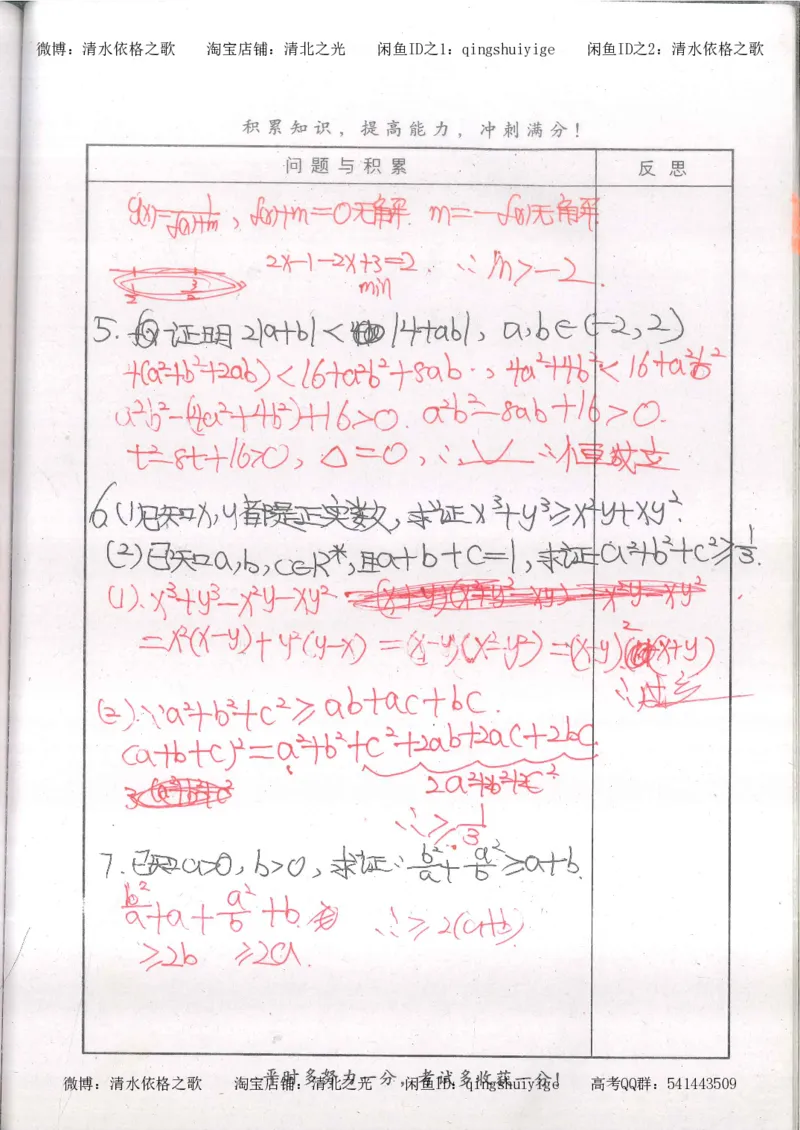 微博：清水依格之歌 淘宝店铺：清北之光 闲鱼ID之1：qingshuiyige 闲鱼ID之2：清水依格之歌
积累知识，提高能力，冲刺满分！
问题与积累 反思
g(x)=1/(f(x)+m)，f(x)+m=0无解. m=-f(x)无解
2x-1-2x+3=2. ∴m>-2.
min
1/2 3/2
5. 证明 2|a+b|<|4+ab|，a,b∈(-2,2)
4(a²+b²+2ab)<16+a²b²+8ab ∴4a²+4b²<16+a²b²
a²b²-(4a²+4b²)+16>0. a²b²-8ab+16>0.
t²-8t+16>0，△=0，∴ ∴恒成立
6(1)已知x,y都是正实数，求证x³+y³≥x²y+xy².
(2)已知a,b,c∈R*,且a+b+c=1,求证a²+b²+c²≥1/3.
(1).x³+y³-x²y-xy²
=x²(x-y)+y²(y-x)=(x-y)(x²-y²)=(x-y)²(x+y)
∴
(2).∵a²+b²+c²≥ab+ac+bc.
(a+b+c)²=a²+b²+c²+2ab+2ac+2bc.
2a²+2b²+2c²
∴≥1/3
7.已知a>0,b>0,求证:b²/a+a²/b≥a+b.
b²/a+a+a²/b+b. ∴≥2(a+b)
≥2b ≥2a.
平时多努力一分，考试多收获一分！
微博：清水依格之歌 淘宝店铺：清北之光 闲鱼ID：qingshuiyige 高考QQ群：541443509